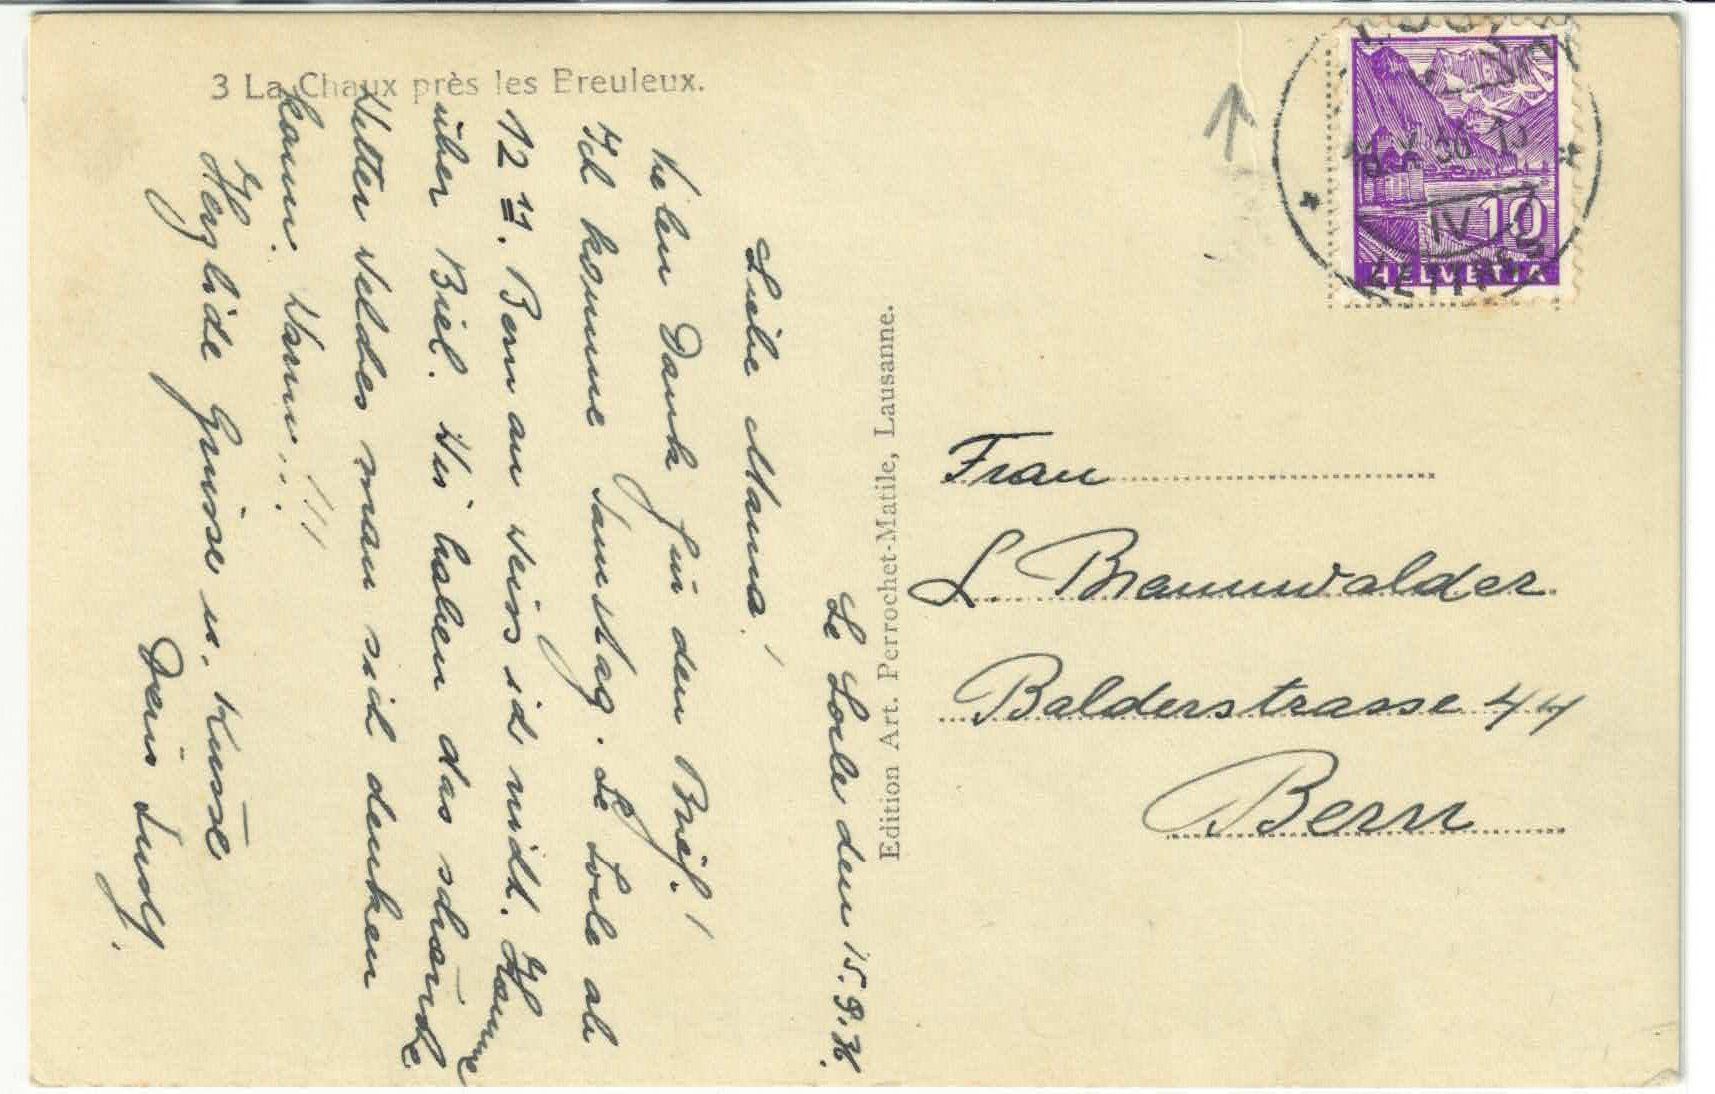 3 La Chaux près les Breuleux.
Le Locle den 15.9.36.
Liebe Mama!
Vielen Dank für den Brief!
Ich komme Samstag. Le Locle ab
12 11. Bern an weiss ich nicht. Komme
über Biel. Wir haben das schönste
Wetter welches man sich denken
kann. Warm!!!
Herzliche Grüsse u. Küsse
Dein
Edition Art. Perrochet-Matile, Lausanne.
HELVETIA
10
IV
Frau
L. Braunwalder
Balderstrasse 44
Bern